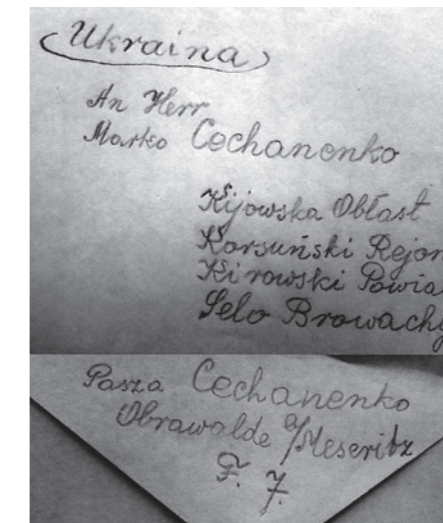 Ukraina
An Herr
Marko Cechanenko
Kijowska Obłast
Korsuński Rejon
Kirowski Powia
Selo Browachy
Pasza Cechanenko
Obrawalde a/Meseritz
F. J.